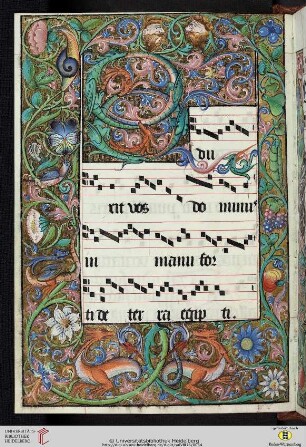 Edu
xit vos do minu
in manu for
ti de ter ra egip ti.
UNIVERSITÄTS-
BIBLIOTHEK
HEIDELBERG
© Universitätsbibliothek Heidelberg